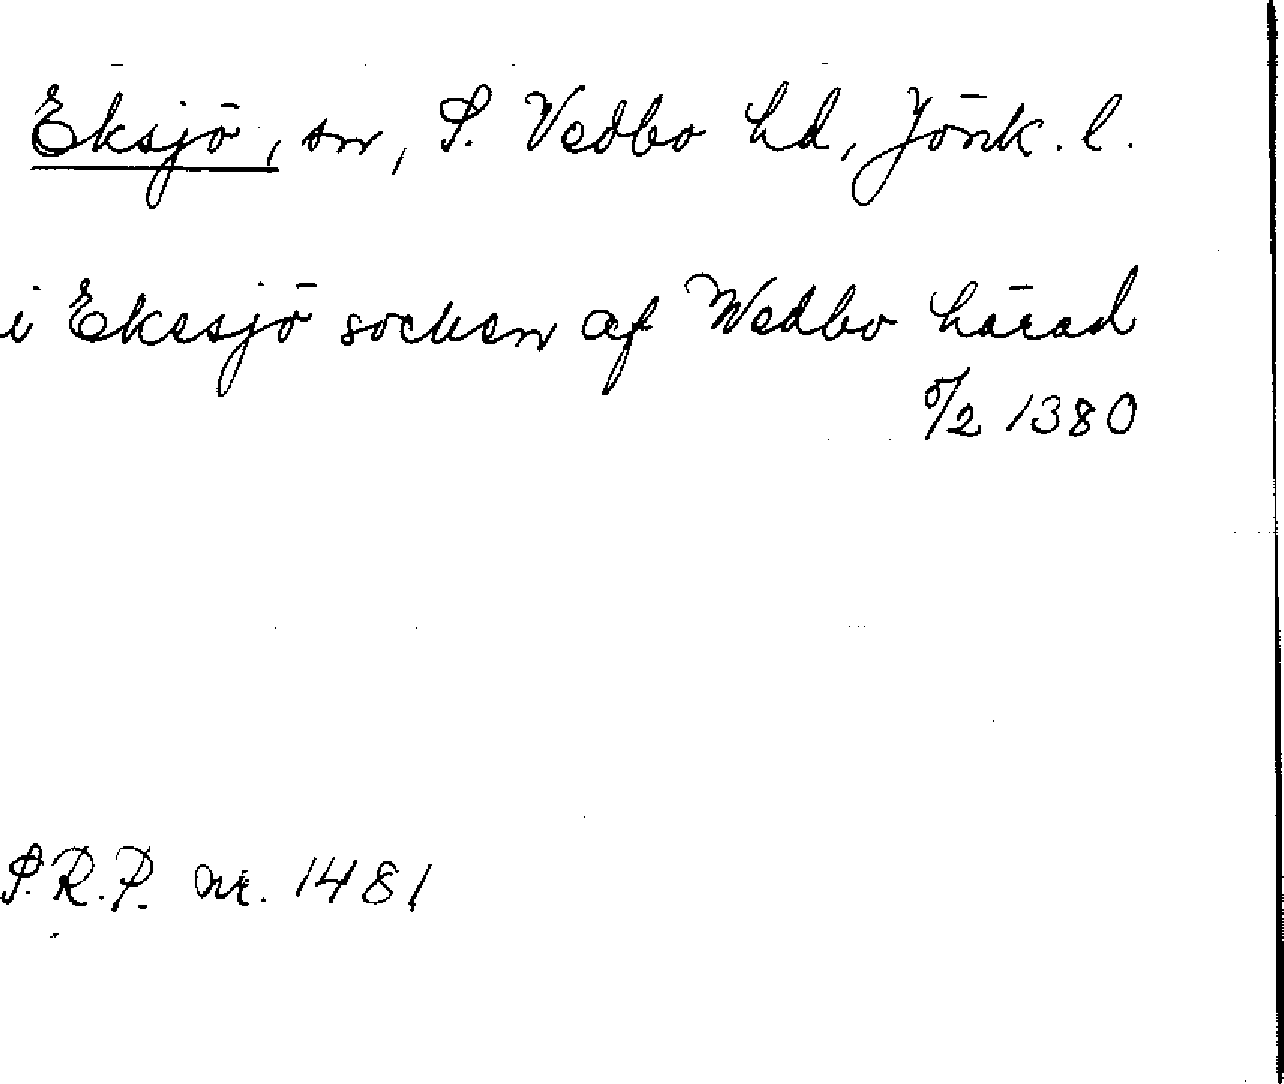 Eksjö, sn, S. Vedbo hd, Jönk. l.
i Ekesjö socken af Wedbo härad
5/2 1380
S.R.P. nr. 1481